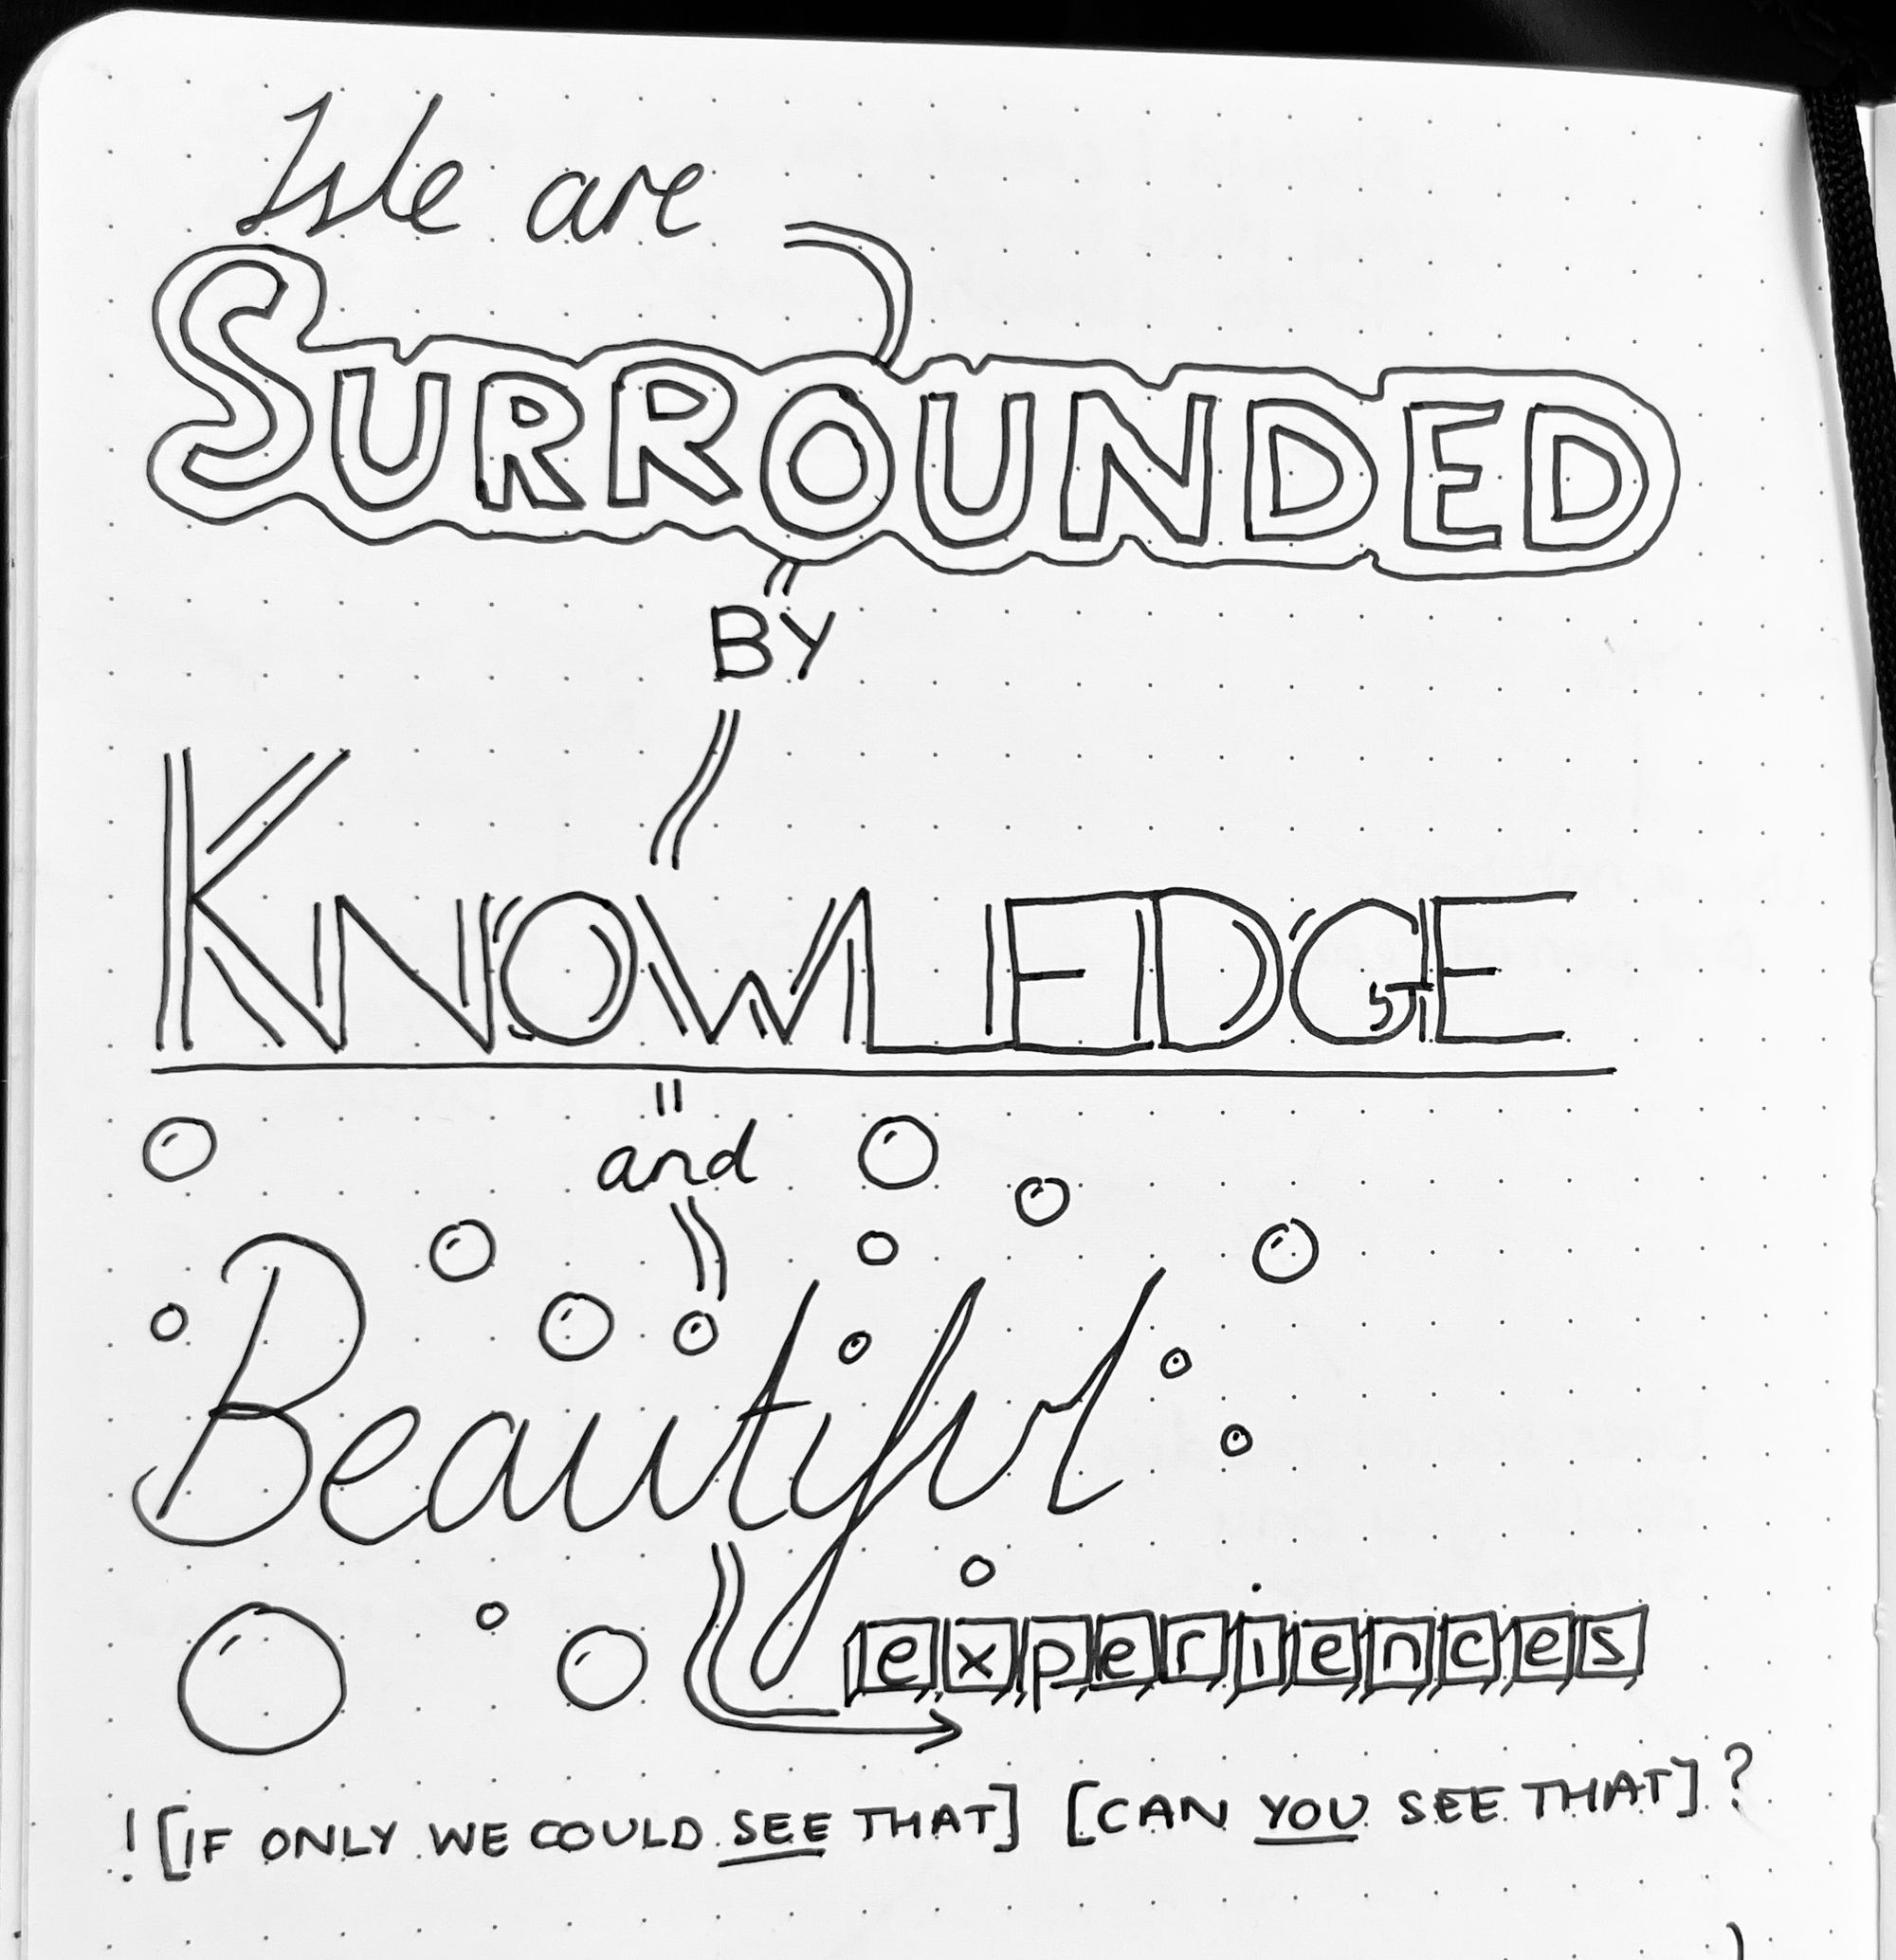 We are
SURROUNDED
BY
KNOWLEDGE
and
Beautiful
experiences
![IF ONLY WE COULD SEE THAT] [CAN YOU SEE THAT]?